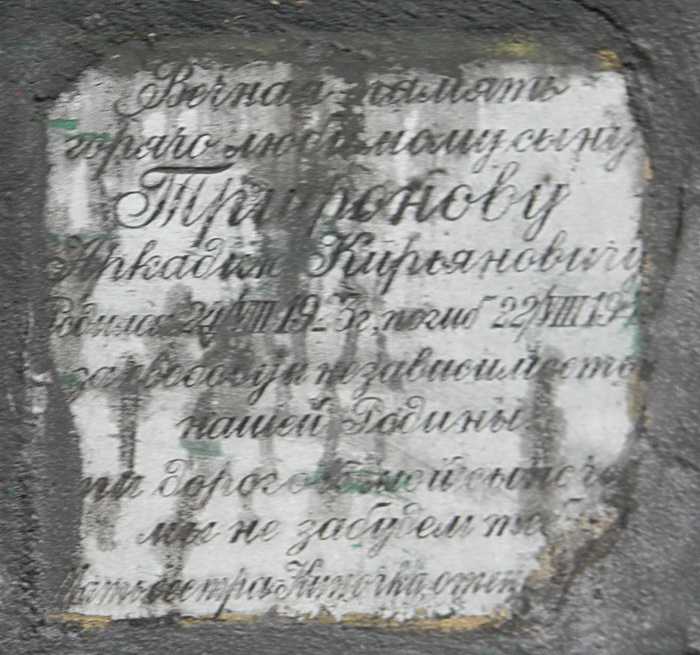 Вечная память
горячо любимому сыну
Трифонову
Аркадию Кирьяновичу
Родился 24/VIII погиб 22/VIII
за свободу и независимость
нашей Родины.
дорогой мой сыночек
мы не забудем тебя
Мать сестра Ниночка, отец